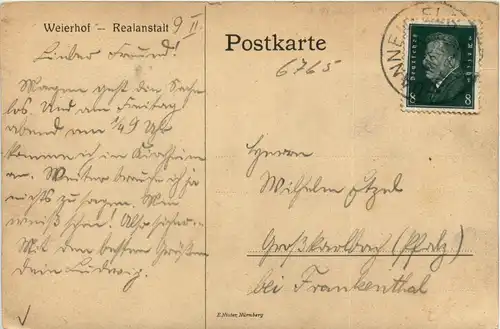 Weierhof – Realanstalt 9 II.
Lieber Freund!
Morgen geht die Sache
los. Und am Freitag
abend um 1/49 Uhr
komme ich in Kirchheim
an. Weiter brauche ich ja
nichts zu sagen. Man
weiß schon! Also sicher.
Mit den besten Grüßen
Dein Ludwig.
Postkarte
6765
Deutsches Reich
8 8
Herrn
Wilhelm Etzel
Großkarlbach (Pfalz)
bei Frankenthal
E. Nister, Nürnberg